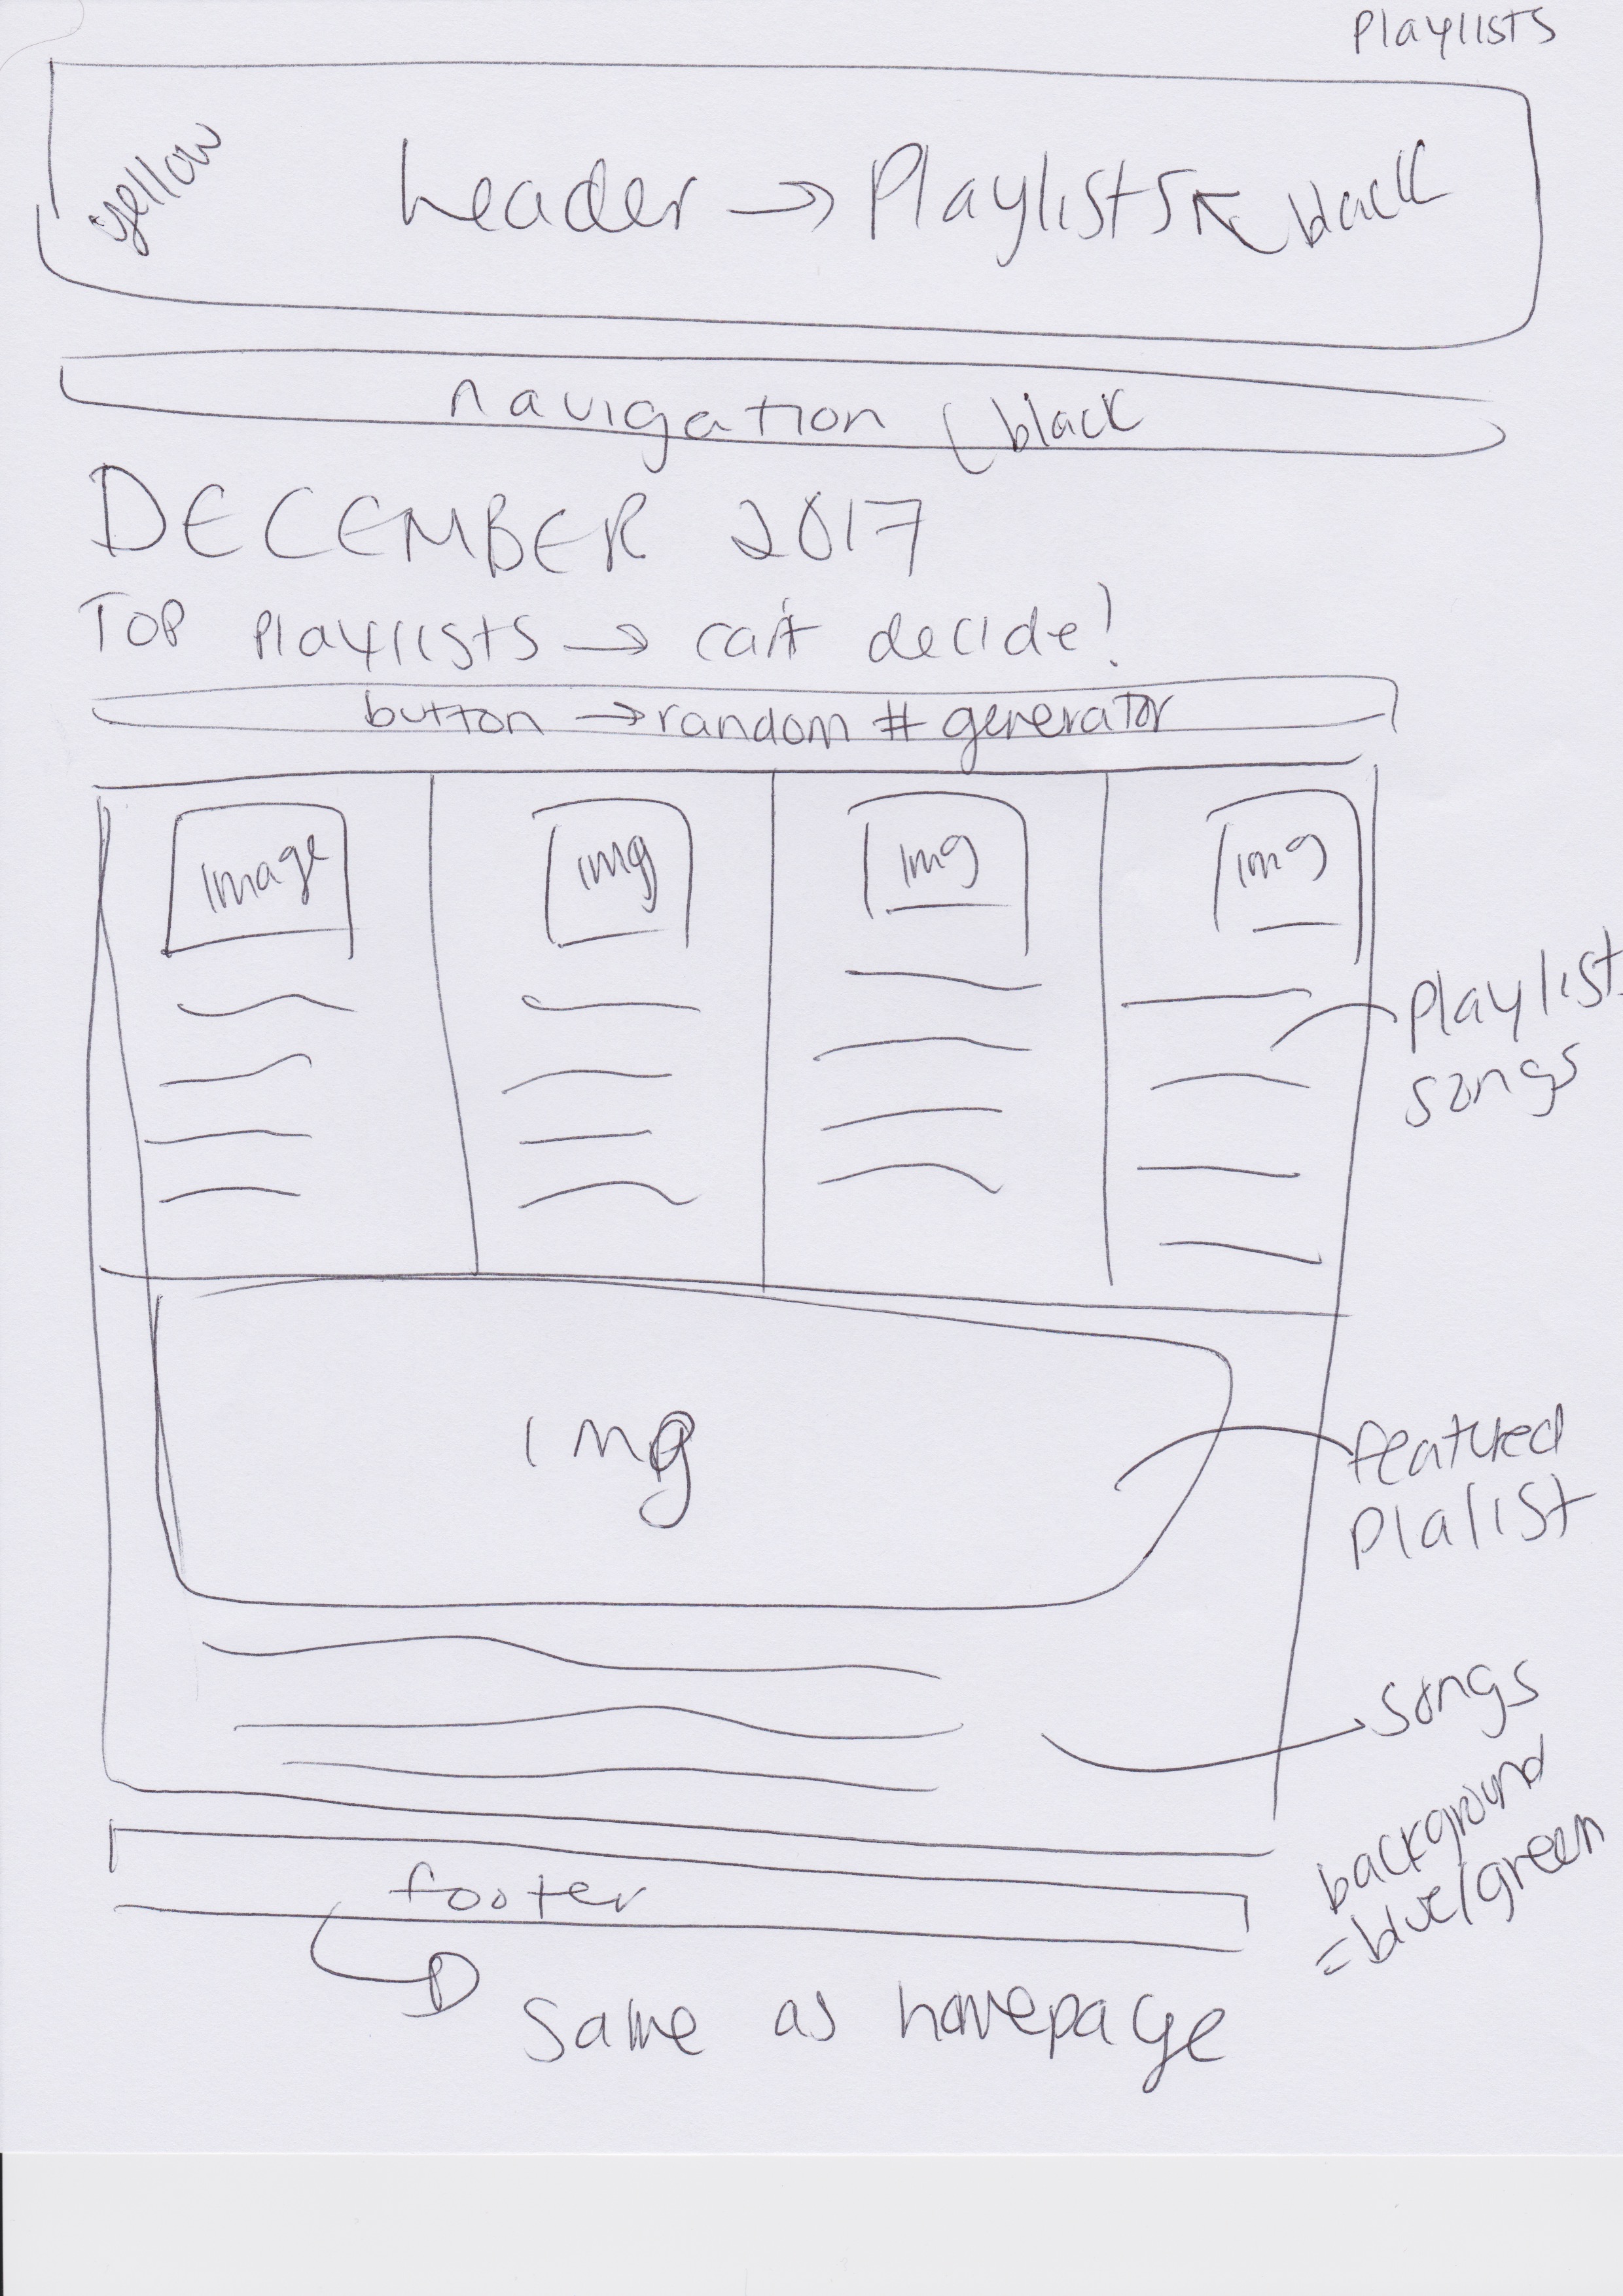 Playlists
yellow
header → Playlists
black
navigation
black
DECEMBER 2017
TOP Playlists → can't decide!
button → random # generator
image
img
img
img
Playlist
songs
img
featured
Plalist
songs
background
= blue/green
footer
same as homepage